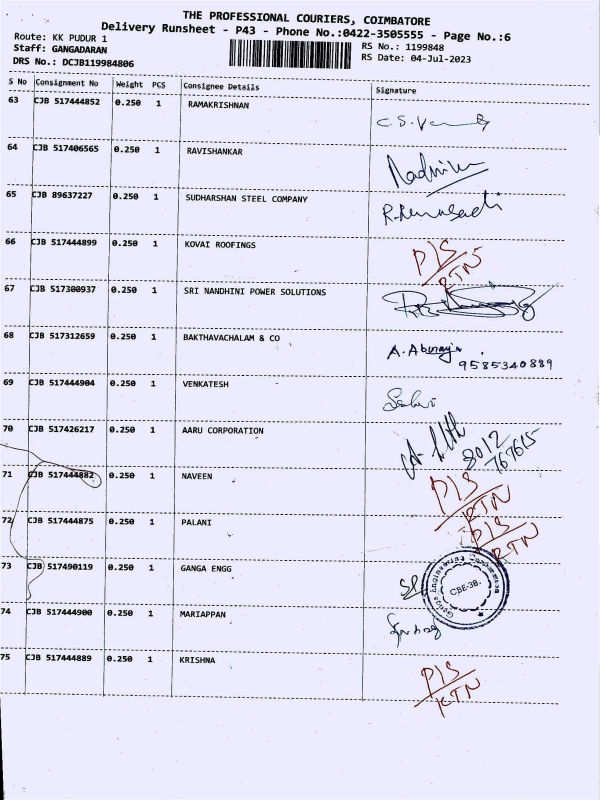 THE PROFESSIONAL COURIERS, COIMBATORE
Delivery Runsheet - P43 - Phone No.:0422-3505555 - Page No.:6
Route: KK PUDUR 1
RS No.: 1199848
Staff: GANGADARAN
RS Date: 04-Jul-2023
DRS No.: DCJB119984806
S No Consignment No Weight PCS Consignee Details Signature
63 CJB 517444852 0.250 1 RAMAKRISHNAN
64 CJB 517406565 0.250 1 RAVISHANKAR
65 CJB 89637227 0.250 1 SUDHARSHAN STEEL COMPANY
66 CJB 517444899 0.250 1 KOVAI ROOFINGS D/S
RTN
67 CJB 517300937 0.250 1 SRI NANDHINI POWER SOLUTIONS
68 CJB 517312659 0.250 1 BAKTHAVACHALAM & CO A. Abinaya
9585340889
69 CJB 517444904 0.250 1 VENKATESH
70 CJB 517426217 0.250 1 AARU CORPORATION 8012
767615
71 CJB 517444882 0.250 1 NAVEEN D/S
RTN
72 CJB 517444875 0.250 1 PALANI D/S
RTN
73 CJB 517490119 0.250 1 GANGA ENGG CBE-3B.
74 CJB 517444900 0.250 1 MARIAPPAN
75 CJB 517444889 0.250 1 KRISHNA D/S
RTN